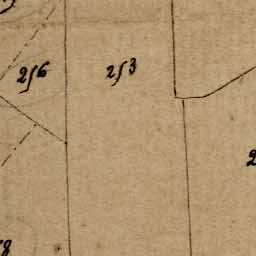 256
253
2
8